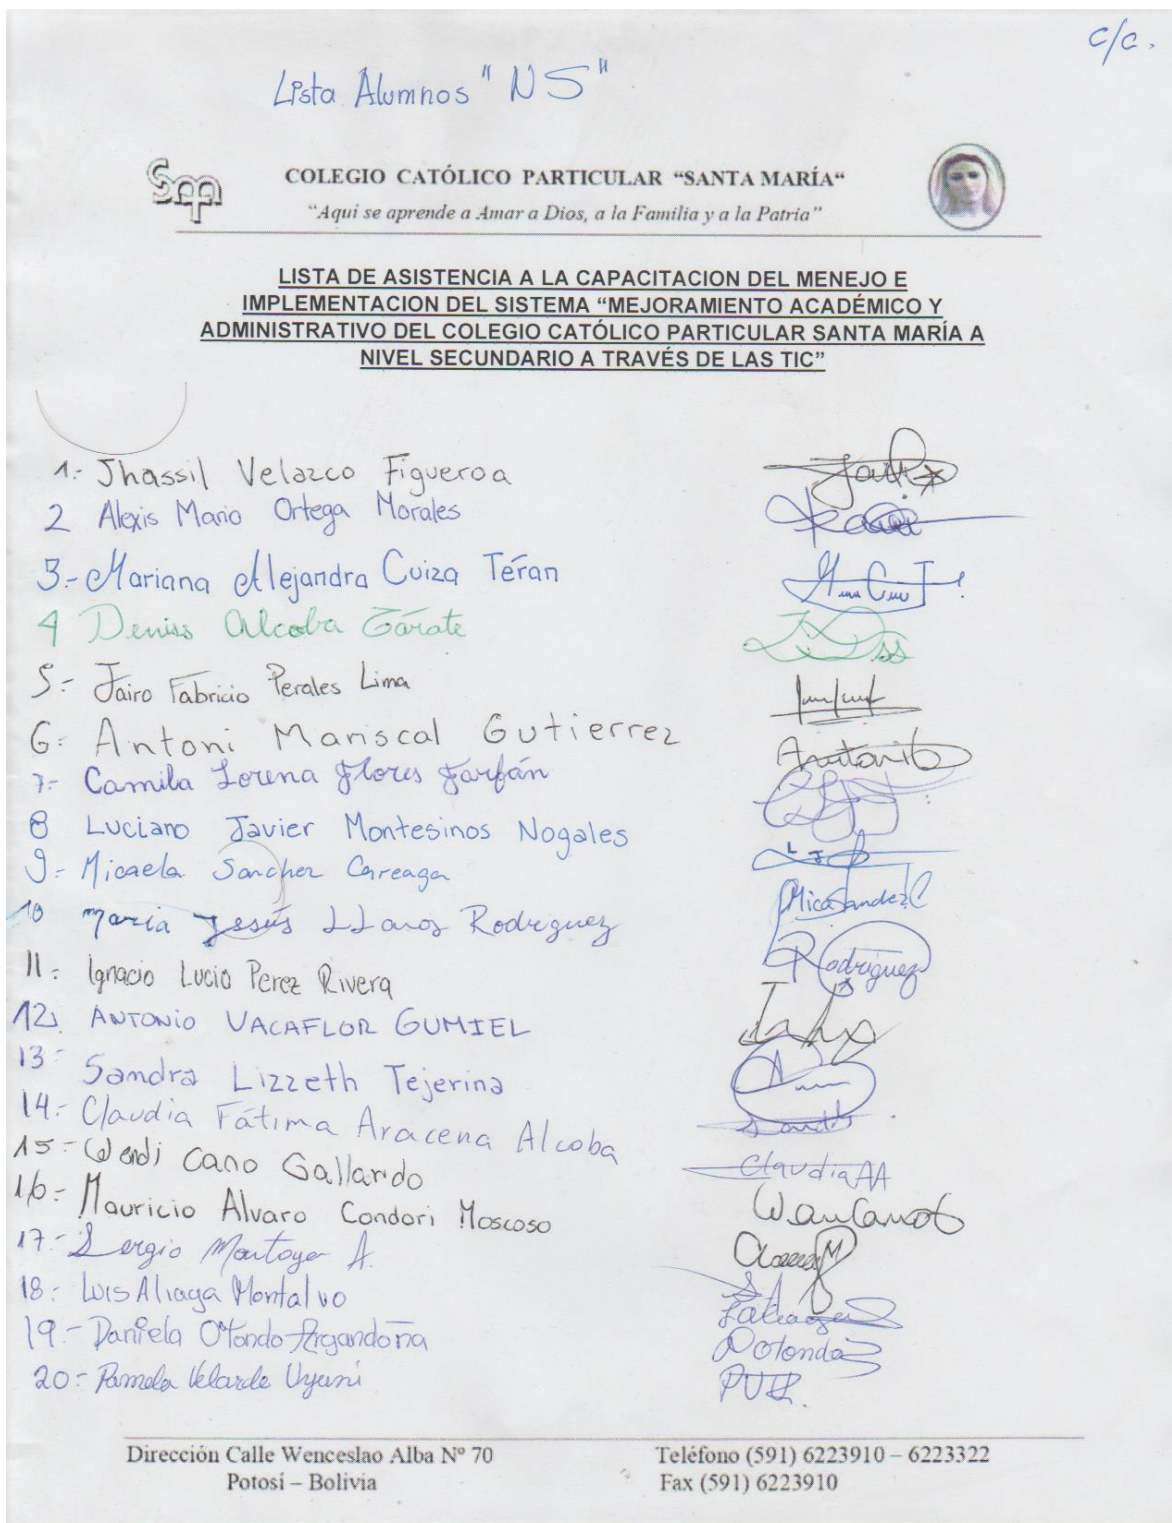 c/c.
Lista Alumnos "NS"
Smm
COLEGIO CATÓLICO PARTICULAR “SANTA MARÍA“
“Aquí se aprende a Amar a Dios, a la Familia y a la Patria”
LISTA DE ASISTENCIA A LA CAPACITACION DEL MENEJO E
IMPLEMENTACION DEL SISTEMA “MEJORAMIENTO ACADÉMICO Y
ADMINISTRATIVO DEL COLEGIO CATÓLICO PARTICULAR SANTA MARÍA A
NIVEL SECUNDARIO A TRAVÉS DE LAS TIC”
1.- Jhassil Velazco Figueroa
2 Alexis Mario Ortega Morales
3.- Mariana Alejandra Cuiza Téran
4 Deniss Alcoba Zárate
5.- Jairo Fabricio Perales Lima
6.- Antoni Mariscal Gutierrez
7.- Camila Lorena Flores Farfán
8 Luciano Javier Montesinos Nogales
9.- Micaela Sanchez Careaga MicaSandez C
10 Maria Jesús LLanos Rodriguez Rodriguez
11.- Ignacio Lucio Perez Rivera
12). ANTONIO VACAFLOR GUMIEL
13.- Sandra Lizzeth Tejerina
14.- Claudia Fátima Aracena Alcoba ClaudiaAA
15.- Wendi Cano Gallardo
16.- Mauricio Alvaro Condori Moscoso
17.- Sergio Montoya A.
18.- Luis Aliaga Montalvo
19.- Daniela Otondo Argandoña
20.- Pamela Velarde Uyuni
Dirección Calle Wenceslao Alba Nº 70 Teléfono (591) 6223910 – 6223322
Potosí – Bolivia Fax (591) 6223910